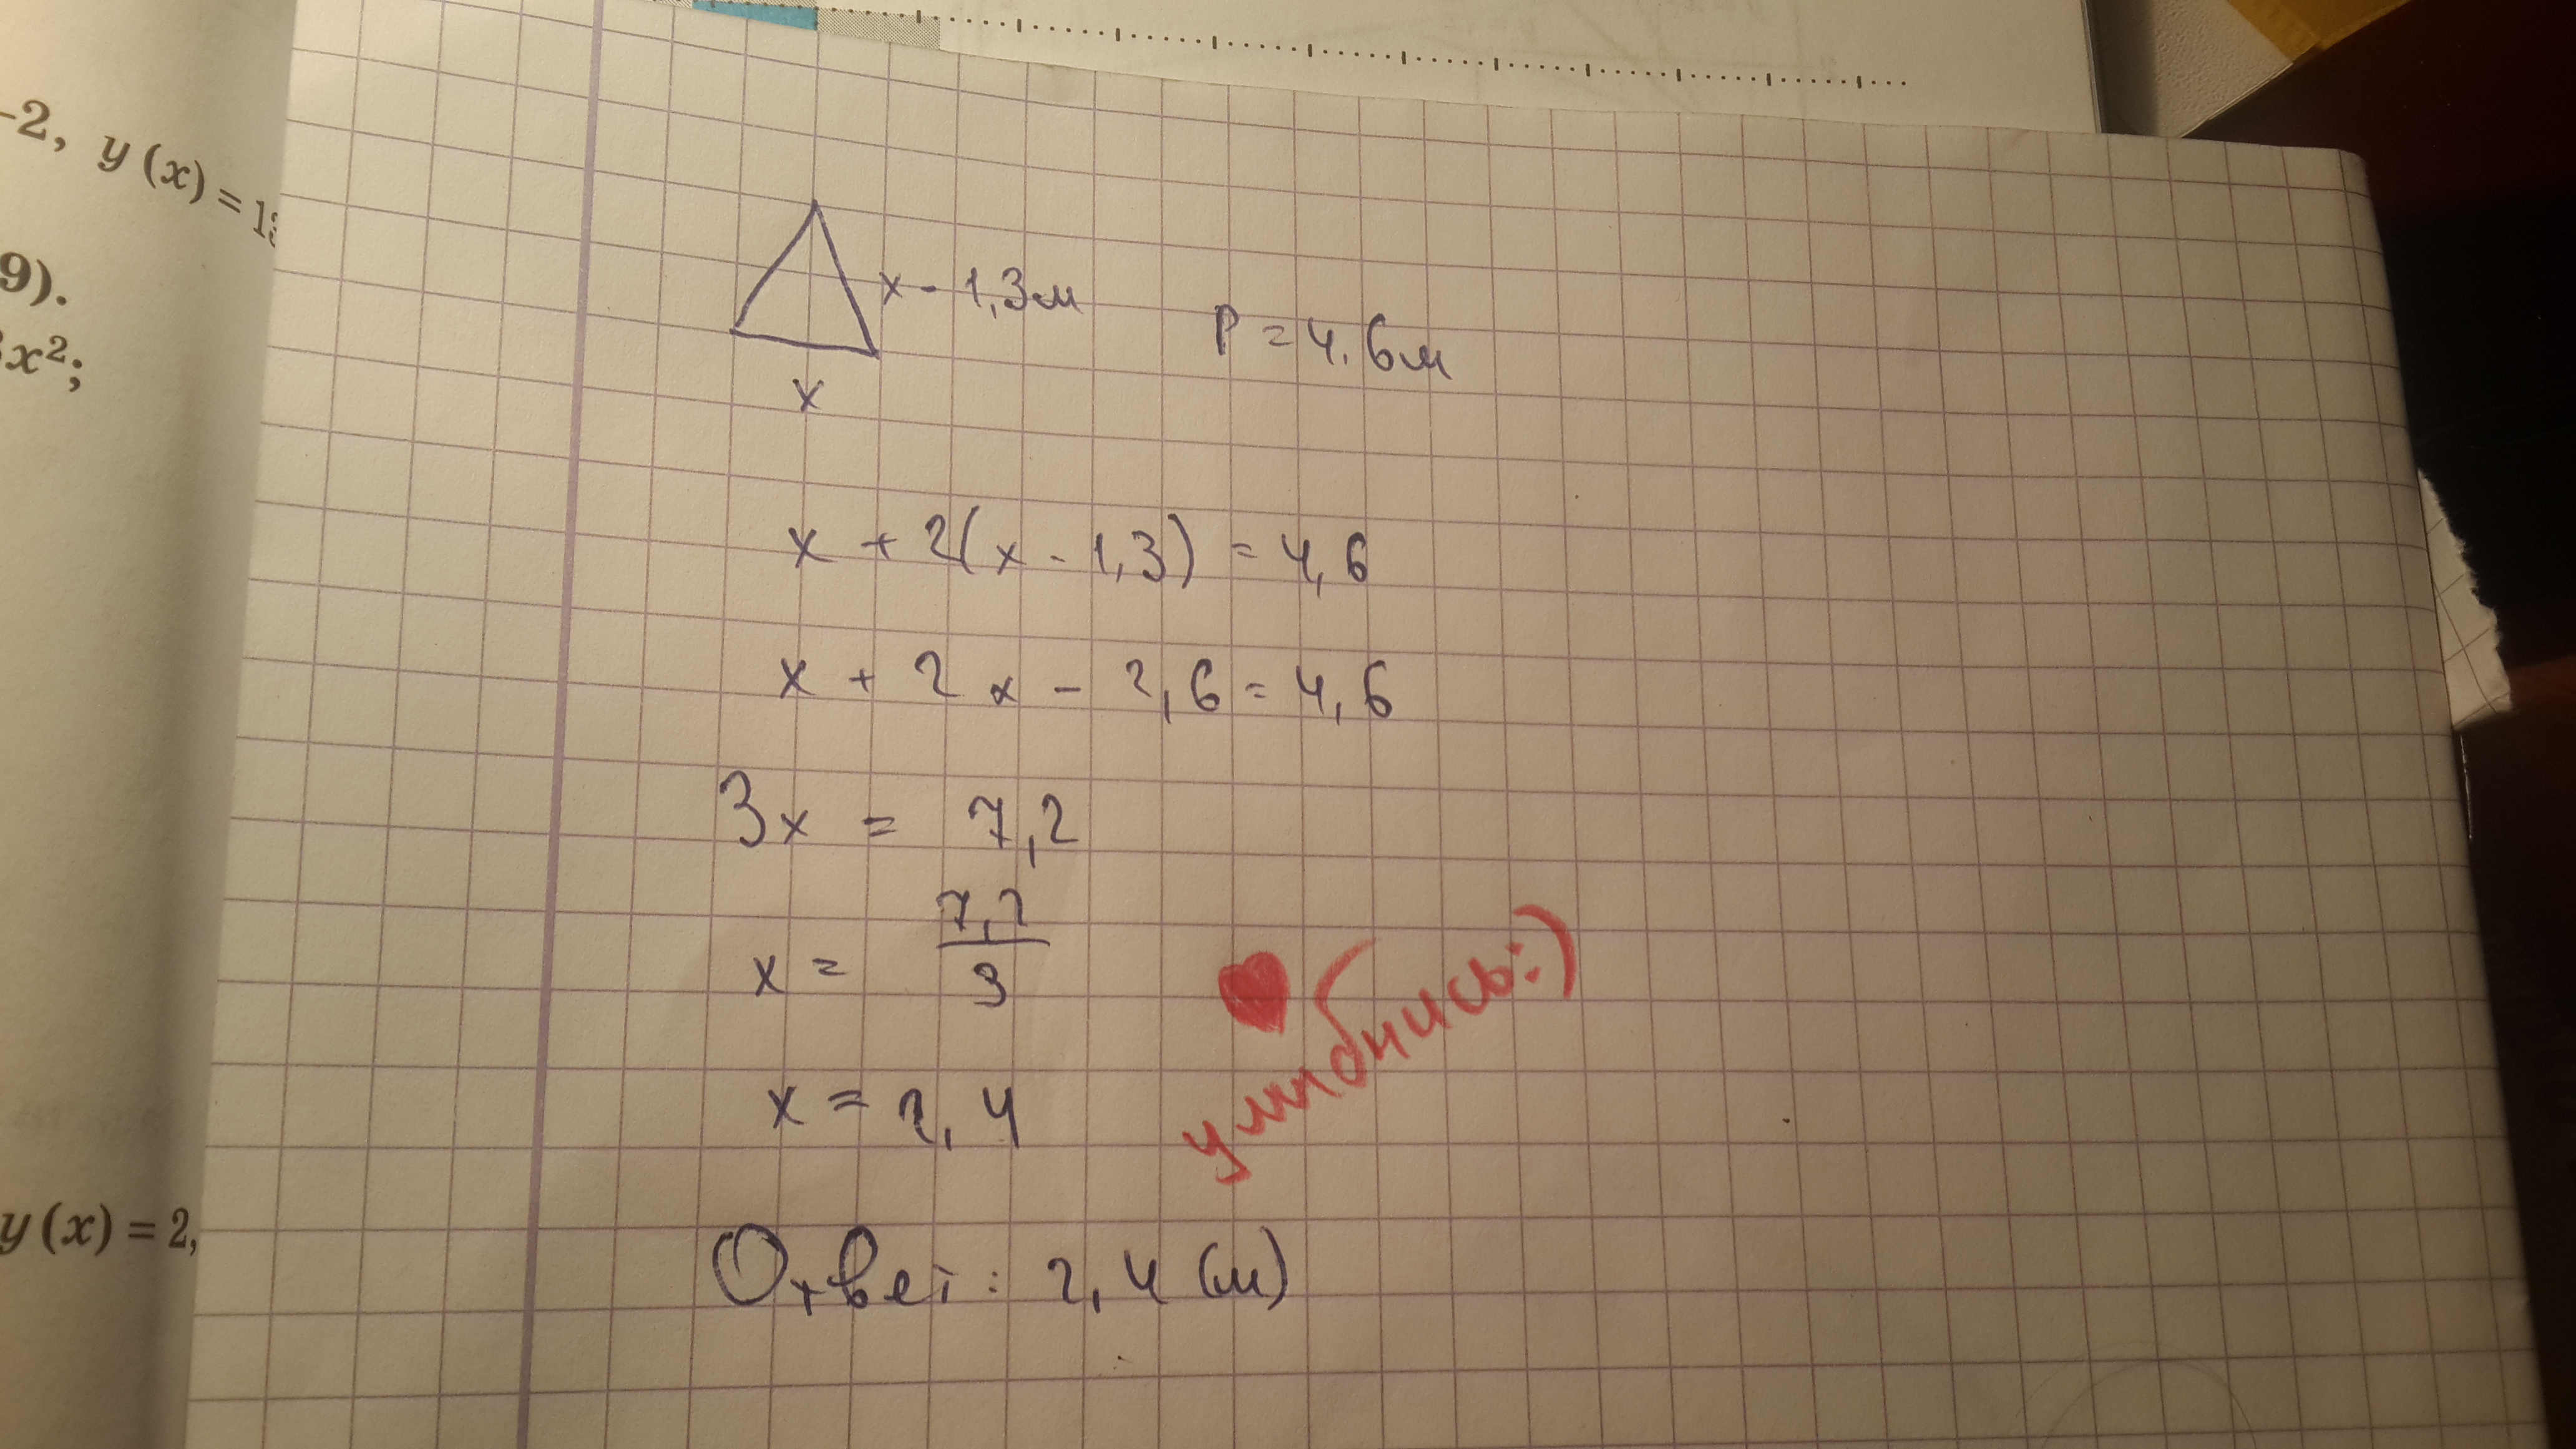 -2, y (x) = 1
9).
x²;
y (x) = 2,
x - 1,3м
x
P = 4,6м
x + 2(x - 1,3) = 4,6
x + 2x - 2,6 = 4,6
3x = 7,2
x = 7,2/3
x = 2,4
улыбнись:)
Ответ: 2,4 (м)